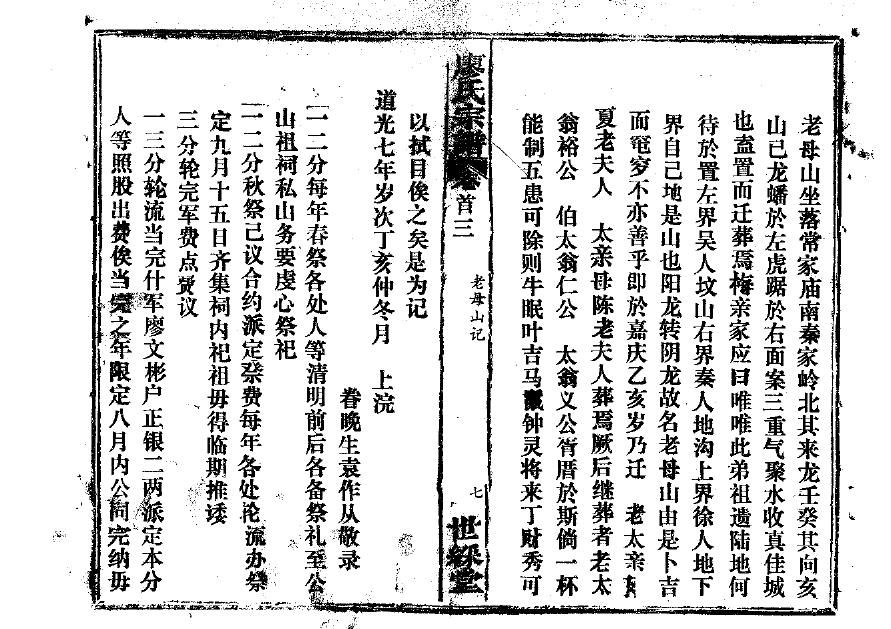 老母山坐落常家庙南秦家岭北其来龙壬癸其向亥
山已龙蟠於左虎踞於右面案三重气聚水收真佳城
也盍置而迁葬焉梅亲家应曰唯唯此弟祖遗陆地何
待於置左界吴人坟山右界秦人地沟上界徐人地下
界自己地是山也阳龙转阴龙故名老母山由是卜吉
而窀穸不亦善乎即於嘉庆乙亥岁乃迁 老太亲
夏老夫人 太亲母陈老夫人葬焉厥后继葬者老太
翁裕公 伯太翁仁公 太翁义公胥厝於斯倘一杯
能制五患可除则牛眠叶吉马鬣钟灵将来丁财秀可
廖氏宗谱卷首三
老母山记
七
世綵堂
以拭目俟之矣是为记
道光七年岁次丁亥仲冬月 上浣
眷晚生袁作从敬录
一二分每年春祭各处人等清明前后各备祭礼至公
山祖祠私山务要虔心祭祀
一二分秋祭己议合约派定祭费每年各处沦流办祭
定九月十五日齐集祠内祀祖毋得临期推诿
三分轮完军费点费议
一三分轮流当完什军廖文彬户正银二两派定本分
人等照股出费俟当完之年限定八月内公同完纳毋